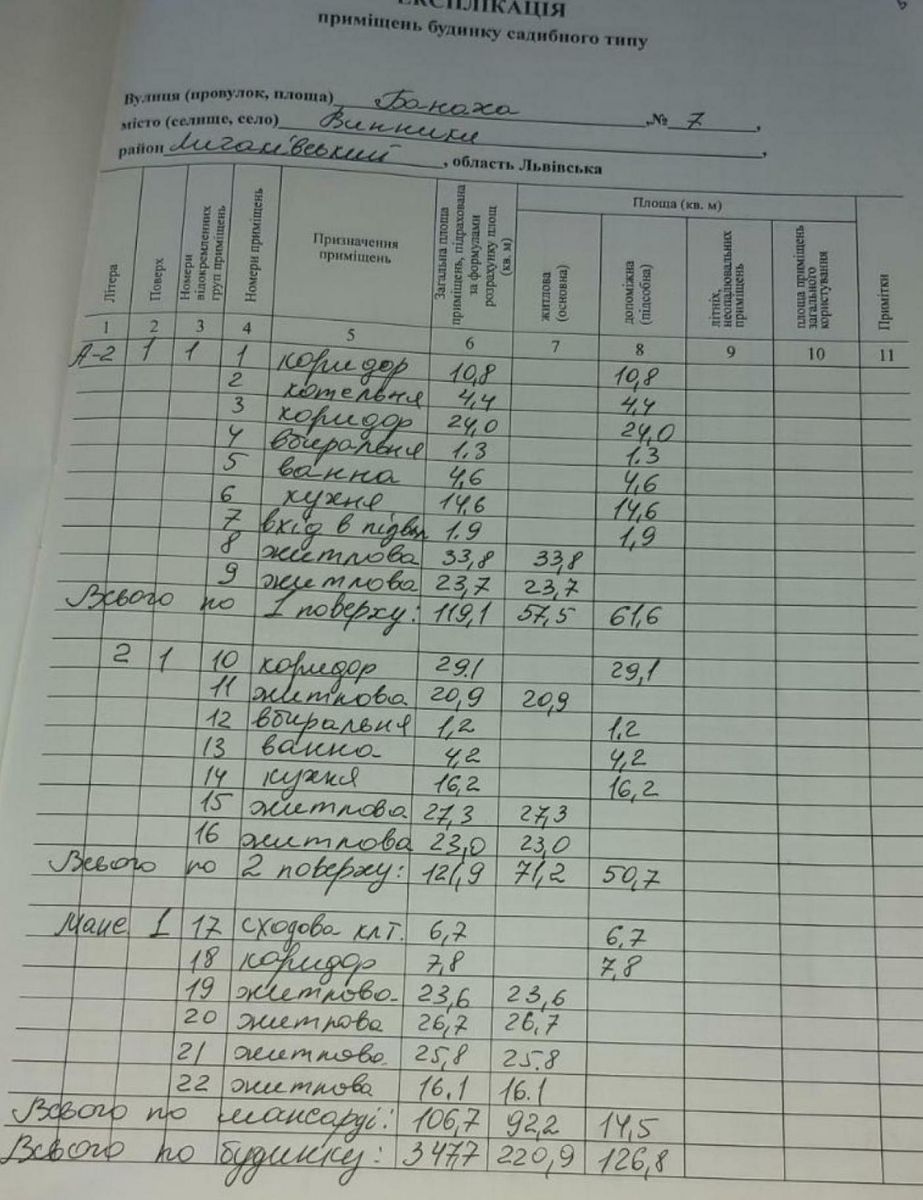 ЕКСПЛІКАЦІЯ
приміщень будинку садибного типу
Вулиця (провулок, площа) Банаха, № 7,
місто (селище, село) Винники,
район Личаківський, область Львівська
Літера | Поверх | Номери відокремленних груп приміщень | Номери приміщень | Призначення приміщень | Загальна площа приміщень, підрахована за формулами розрахунку площ (кв. м) | Площа (кв. м) | житлова (основна) | допоміжна (підсобна) | літніх, неопалювальних приміщень | площа приміщень загального користування | Примітки
1 2 3 4 5 6 7 8 9 10 11
А-2 1 1 1 коридор 10,8 10,8
2 котельня 4,4 4,4
3 коридор 24,0 24,0
4 вбиральня 1.3 1.3
5 ванна 4,6 4,6
6 кухня 14,6 14,6
7 вхід в підвал 1.9 1,9
8 житлова 33,8 33,8
9 житлова 23,7 23,7
Всього по 1 поверху: 119,1 57,5 61,6
2 1 10 коридор 29.1 29,1
11 житлова 20,9 20,9
12 вбиральня 1,2 1.2
13 ванна 4,2 4,2
14 кухня 16,2 16,2
15 житлова 27,3 27,3
16 житлова 23,0 23,0
Всього по 2 поверху: 121,9 71,2 50,7
Манс. 1 17 сходова клт. 6,7 6.7
18 коридор 7,8 7,8
19 житлова 23,6 23,6
20 житлова 26,7 26,7
21 житлова 25,8 25.8
22 житлова 16.1 16.1
Всього по мансарді: 106,7 92,2 14,5
Всього по будинку: 347,7 220,9 126,8